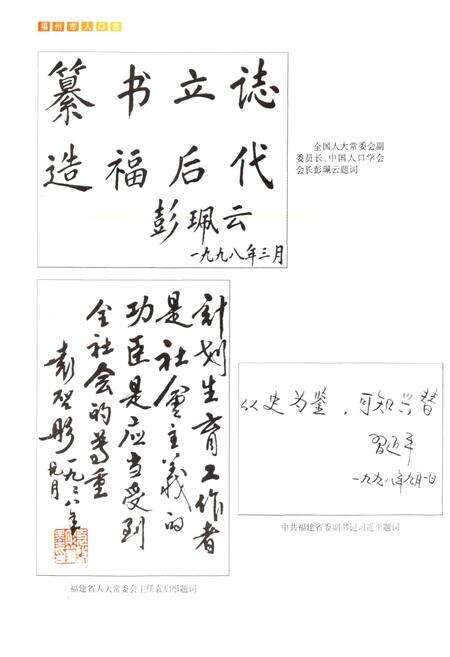 福州市人口志
纂书立誌
造福后代
彭珮云
一九九八年三月
全国人大常委会副
委员长、中国人口学会
会长彭珮云题词
计划生育工作者
是社会主义的
功臣是应当受到
全社会的尊重
袁启彤
一九九八年
九月
福建省人大常委会主任袁启彤题词
以史为鉴，可知兴替
习近平
一九九八年九月一日
中共福建省委副书记习近平题词